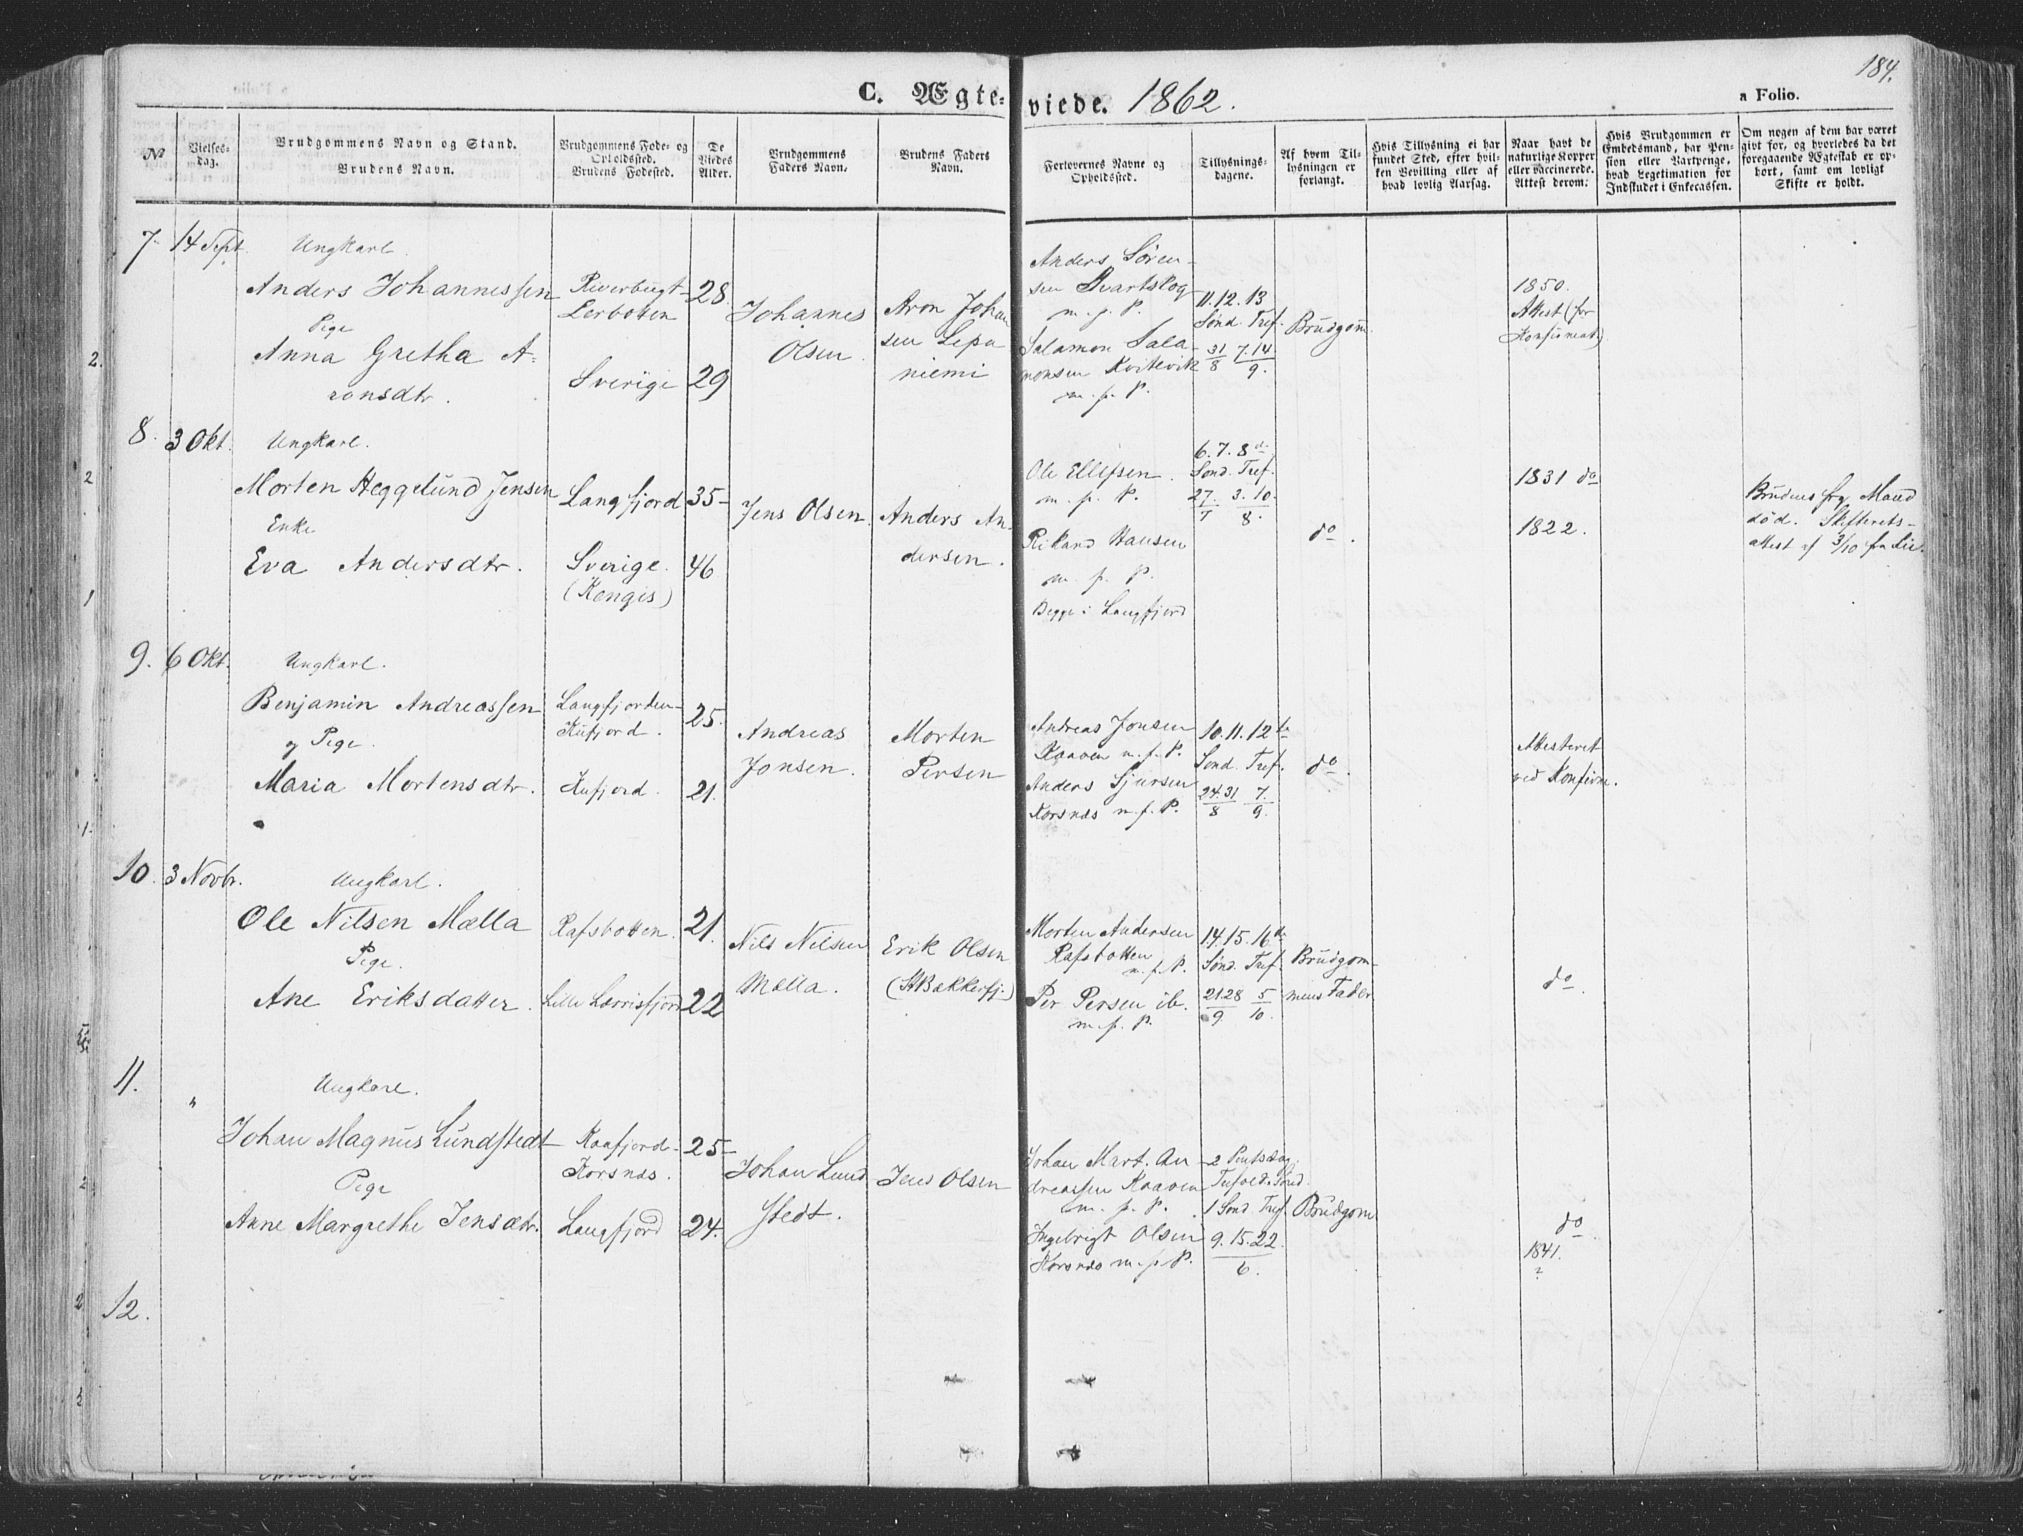 184.
C. Ægteviede. 1862.
a Folio.
No
Vielses-
dag.
Brudgommens Navn og Stand.
Brudens Navn.
Brudgommens Føde- og
Opholdssted.
Brudens Fødested.
De
Viedes
Alder.
Brudgommens
Faders Navn.
Brudens Faders
Navn.
Forlovernes Navne og
Opholdssted.
Tillysnings-
dagene.
Af hvem Til-
lysningen er
forlangt.
Hvis Tillysning ei har
fundet Sted, efter hvil-
ken Bevilling eller af
hvad lovlig Aarsag.
Naar havt de
naturlige Kopper
eller vaccinerede.
Attest derom:
Hvis Brudgommen er
Embedsmand, har Pen-
sion eller Vartpenge,
hvad Legetimation for
Indskudet i Enkecassen.
Om nogen af dem har været
givt for, og hvorledes da det
foregaaende Ægteskab er op-
hørt, samt om lovligt
Skifte er holdt.
7. 14 Sept.
Ungkarl.
Anders Johannessen
Pige
Anna Gretha A-
ronsdtr.
Riverbugt
Lerbotten
Sverige
28.
29
Johannes
Olsen
Aron Johan
sen Lepa
niemi
Anders Søren-
sen Svartskog
m. p. P.
Salamon Sala-
monsen Kvitevik
m. p. P.
11. 12. 13
Sønd. Tref.
31 7. 14
8 9.
Brudgom.
1850.
Attest (for
Konfirmat.)
8. 3 Okt.
Ungkarl.
Morten Heggelund Jensen
Enke
Eva Andersdtr.
Langfjord
Sverige.
(Kengis)
35
46
Jens Olsen
Anders An-
dersen.
Ole Ellefsen.
m. p. P.
Rikard Hansen
m. p. P.
Begge i Langfjord
6. 7. 8 d.
Sønd. Tref.
27. 3. 10.
7 8.
do.
1831 do
1822.
Brudens frg Mand
død. Skifterets-
attest af 3/10 fra
9. 6 Okt.
Ungkarl.
Benjamin Andreassen
og Pige.
Maria Mortensdtr.
Langfjorden
Kufjord.
Kufjord.
25.
21.
Andreas
Jonsen.
Morten
Persen
Andreas Jonsen
Kaaven m. p. P.
Anders Sjursen
Korsnæs m. p. P.
10. 11. 12te
Sønd. Tref.
24. 31 7
8 9.
do.
Attesteret
ved Konfirm.
10. 3 Novbr.
Ungkarl.
Ole Nilsen Mælla
Pige.
Ane Eriksdatter.
Rafsbotten.
Lille Lerrisfjord
21.
22
Nils Nilsen
Mælla.
Erik Olsen
(St Bakkerfj.)
Morten Andersen
Rafsbotten
m. p. P.
Per Persen ib.
m. p. P.
14. 15. 16de
Sønd. Tref.
21 28 5
9 10.
Brudgom-
mens Fader
do.
11. "
Ungkarl.
Johan Magnus Lundstedt
Pige
Anne Margrethe Jensdtr.
Kaafjord-
Korsnæs.
Langfjord
25
24.
Johan Lund
stedt.
Jens Olsen
Johan Mart. An
dreassen Kaaven
m. p. P.
Ingebrigt Olsen
Korsnæs m. p. P.
2 Pintsdag.
1 Sønd. Tref.
9. 15. 22.
6.
Brudgom.
do.
1841.
?
12.